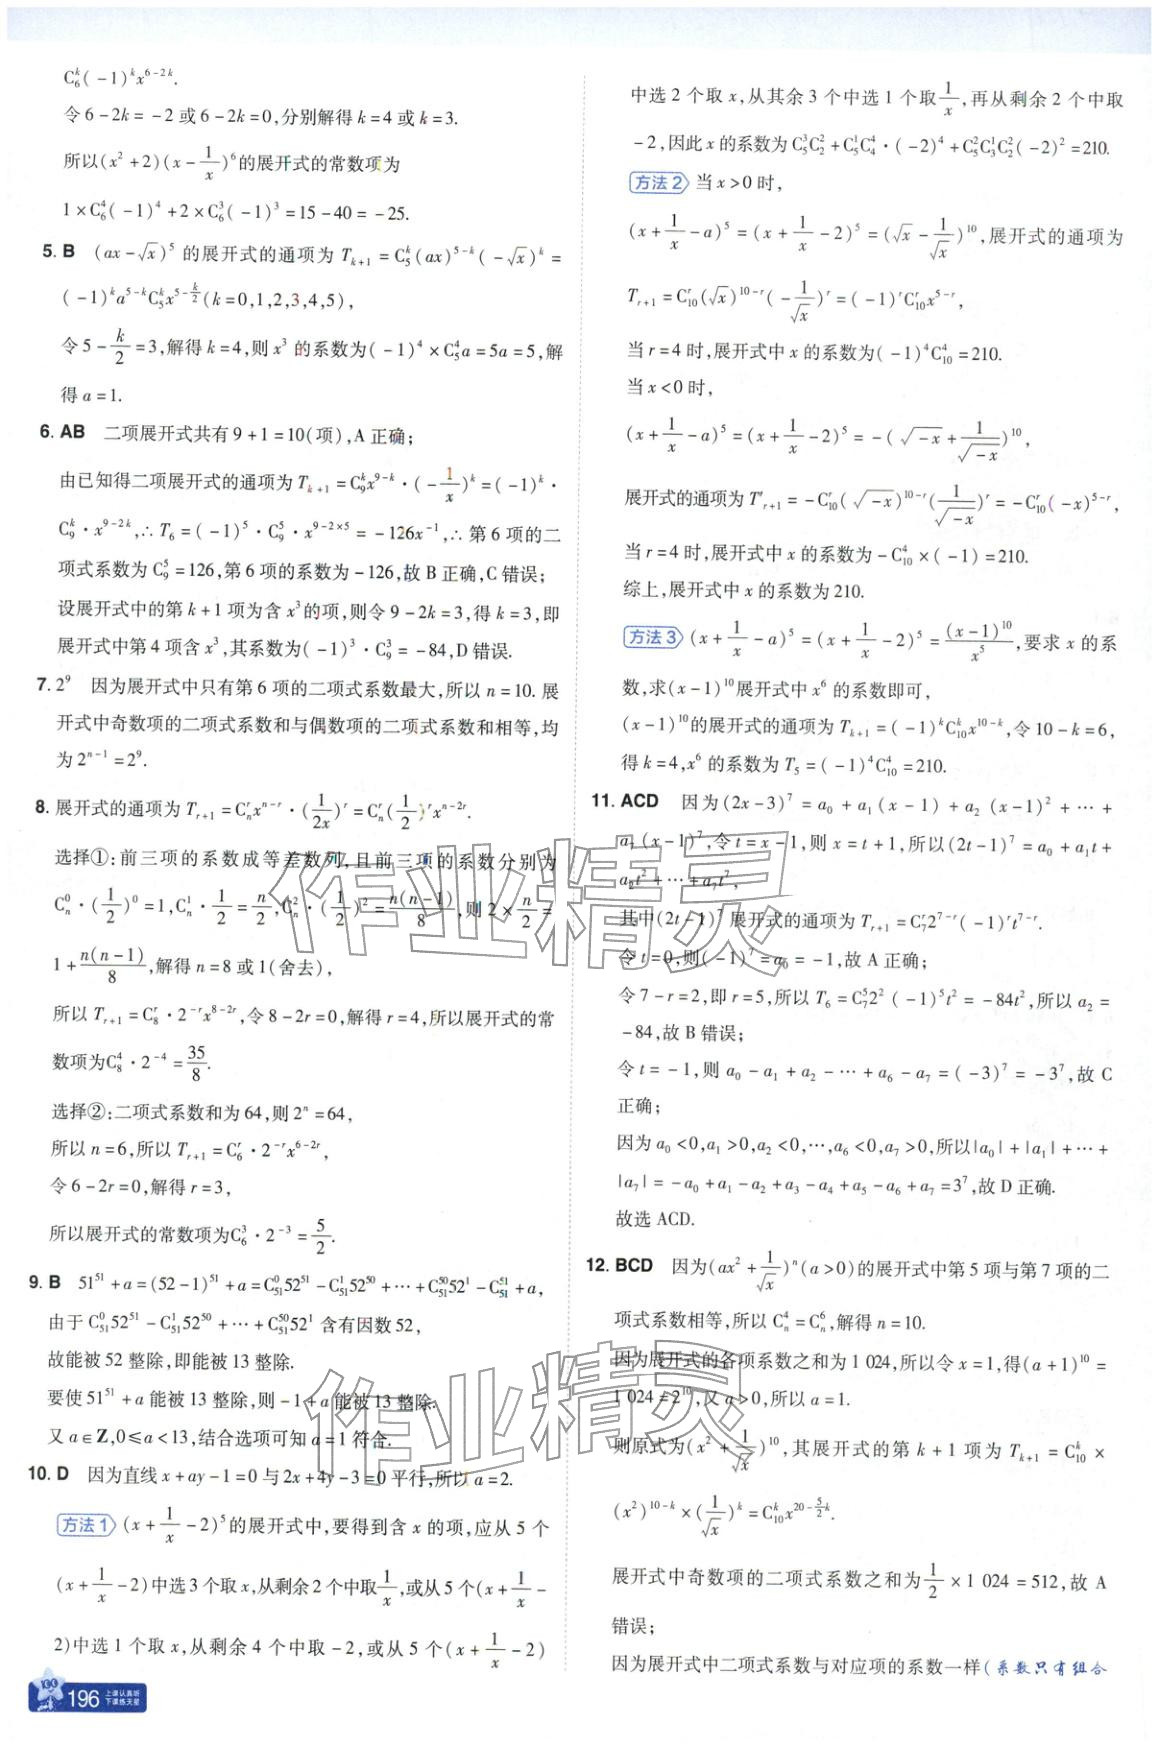 C₆ᵏ(-1)ᵏx⁶⁻²ᵏ.
令6-2k=-2或6-2k=0,分别解得k=4或k=3.
所以(x²+2)(x-1/x)⁶的展开式的常数项为
1×C₆⁴(-1)⁴+2×C₆³(-1)³=15-40=-25.
5. B (ax-√x)⁵的展开式的通项为T_{k+1}=C₅ᵏ(ax)^{5-k}(-√x)ᵏ=
(-1)ᵏa^{5-k}C₅ᵏx^{5-k/2}(k=0,1,2,3,4,5),
令5-k/2=3,解得k=4,则x³的系数为(-1)⁴×C₅⁴a=5a=5,解
得a=1.
6. AB 二项展开式共有9+1=10(项),A正确;
由已知得二项展开式的通项为T_{k+1}=C₉ᵏx^{9-k}·(-1/x)ᵏ=(-1)ᵏ·
C₉ᵏ·x^{9-2k},∴T₆=(-1)⁵·C₉⁵·x^{9-2×5}=-126x⁻¹,∴第6项的二
项式系数为C₉⁵=126,第6项的系数为-126,故B正确,C错误;
设展开式中的第k+1项为含x³的项,则令9-2k=3,得k=3,即
展开式中第4项含x³,其系数为(-1)³·C₉³=-84,D错误.
7. 2⁹ 因为展开式中只有第6项的二项式系数最大,所以n=10.展
开式中奇数项的二项式系数和与偶数项的二项式系数和相等,均
为2^{n-1}=2⁹.
8. 展开式的通项为T_{r+1}=Cₙʳx^{n-r}·(1/2x)ʳ=Cₙʳ(1/2)ʳx^{n-2r}.
选择①:前三项的系数成等差数列,且前三项的系数分别为
Cₙ⁰·(1/2)⁰=1,Cₙ¹·1/2=n/2,Cₙ²·(1/2)²=n(n-1)/8,则2×n/2=
1+n(n-1)/8,解得n=8或1(舍去),
所以T_{r+1}=C₈ʳ·2⁻ʳx^{8-2r},令8-2r=0,解得r=4,所以展开式的常
数项为C₈⁴·2⁻⁴=35/8.
选择②:二项式系数和为64,则2ⁿ=64,
所以n=6,所以T_{r+1}=C₆ʳ·2⁻ʳx^{6-2r}
令6-2r=0,解得r=3,
所以展开式的常数项为C₆³·2⁻³=5/2.
9. B 51⁵¹+a=(52-1)⁵¹+a=C₅₁⁰52⁵¹-C₅₁¹52⁵⁰+…+C₅₁⁵⁰52¹-C₅₁⁵¹+a,
由于C₅₁⁰52⁵¹-C₅₁¹52⁵⁰+…+C₅₁⁵⁰52¹含有因数52,
故能被52整除,即能被13整除.
要使51⁵¹+a能被13整除,则-1+a能被13整除.
又a∈Z,0≤a<13,结合选项可知a=1符合.
10. D 因为直线x+ay-1=0与2x+4y-3=0平行,所以a=2.
方法1 (x+1/x-2)⁵的展开式中,要得到含x的项,应从5个
(x+1/x-2)中选3个取x,从剩余2个中取1/x,或从5个(x+1/x-
2)中选1个取x,从剩余4个中取-2,或从5个(x+1/x-2)
196
上课认真听
下课练天星
中选2个取x,从其余3个中选1个取1/x,再从剩余2个中取
-2,因此x的系数为C₅³C₂²+C₅¹C₄⁴·(-2)⁴+C₅²C₃¹C₂²(-2)²=210.
方法2 当x>0时,
(x+1/x-a)⁵=(x+1/x-2)⁵=(√x-1/√x)¹⁰,展开式的通项为
T_{r+1}=C₁₀ʳ(√x)^{10-r}(-1/√x)ʳ=(-1)ʳC₁₀ʳx^{5-r},
当r=4时,展开式中x的系数为(-1)⁴C₁₀⁴=210.
当x<0时,
(x+1/x-a)⁵=(x+1/x-2)⁵=-(√-x+1/√-x)¹⁰,
展开式的通项为T′_{r+1}=-C₁₀ʳ(√-x)^{10-r}(1/√-x)ʳ=-C₁₀ʳ(-x)^{5-r},
当r=4时,展开式中x的系数为-C₁₀⁴×(-1)=210.
综上,展开式中x的系数为210.
方法3 (x+1/x-a)⁵=(x+1/x-2)⁵=(x-1)¹⁰/x⁵,要求x的系
数,求(x-1)¹⁰展开式中x⁶的系数即可,
(x-1)¹⁰的展开式的通项为T_{k+1}=(-1)ᵏC₁₀ᵏx^{10-k},令10-k=6,
得k=4,x⁶的系数为T₅=(-1)⁴C₁₀⁴=210.
11. ACD 因为(2x-3)⁷=a₀+a₁(x-1)+a₂(x-1)²+…+
a₇(x-1)⁷,令t=x-1,则x=t+1,所以(2t-1)⁷=a₀+a₁t+
a₂t²+…+a₇t⁷,
其中(2t-1)⁷展开式的通项为T_{r+1}=C₇ʳ2^{7-r}(-1)ʳt^{7-r}.
令t=0,则(-1)⁷=a₀=-1,故A正确;
令7-r=2,即r=5,所以T₆=C₇⁵2²(-1)⁵t²=-84t²,所以a₂=
-84,故B错误;
令t=-1,则a₀-a₁+a₂-…+a₆-a₇=(-3)⁷=-3⁷,故C
正确;
因为a₀<0,a₁>0,a₂<0,…,a₆<0,a₇>0,所以|a₀|+|a₁|+…+
|a₇|=-a₀+a₁-a₂+a₃-a₄+a₅-a₆+a₇=3⁷,故D正确.
故选ACD.
12. BCD 因为(ax²+1/√x)ⁿ(a>0)的展开式中第5项与第7项的二
项式系数相等,所以Cₙ⁴=Cₙ⁶,解得n=10.
因为展开式的各项系数之和为1 024,所以令x=1,得(a+1)¹⁰=
1 024=2¹⁰,又a>0,所以a=1.
则原式为(x²+1/√x)¹⁰,其展开式的第k+1项为T_{k+1}=C₁₀ᵏ×
(x²)^{10-k}×(1/√x)ᵏ=C₁₀ᵏx^{20-5/2k}.
展开式中奇数项的二项式系数之和为1/2×1 024=512,故A
错误;
因为展开式中二项式系数与对应项的系数一样(系数只有组合
作业精灵
作业精灵